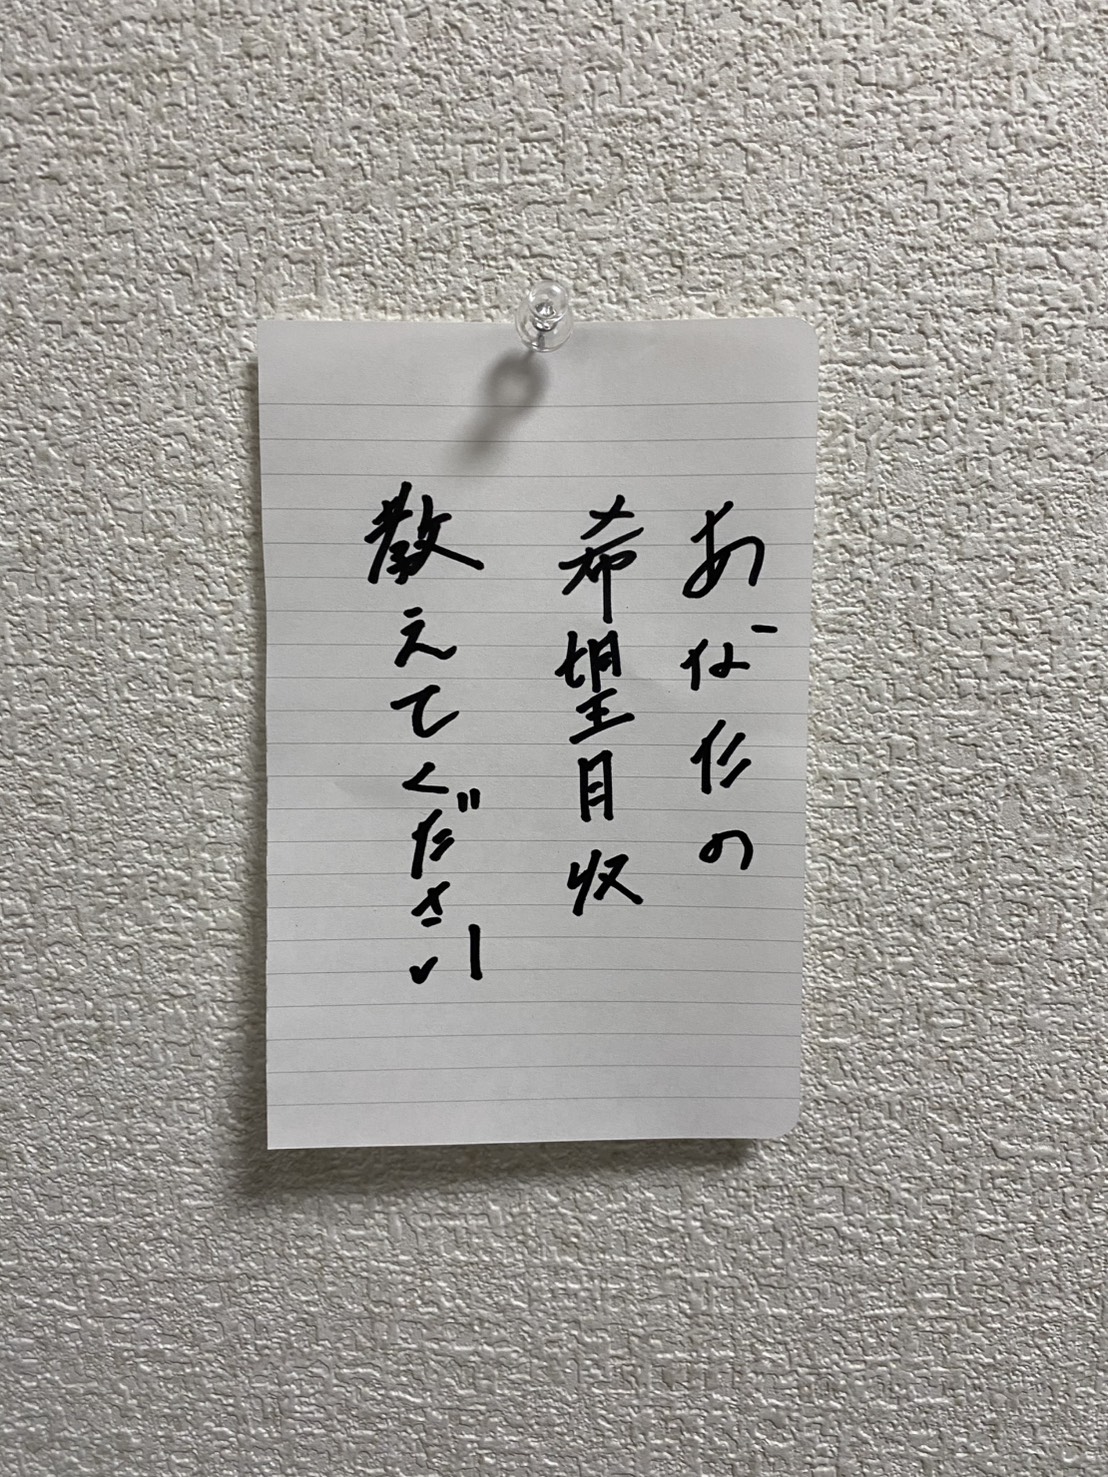 あなたの
希望月収
教えてください